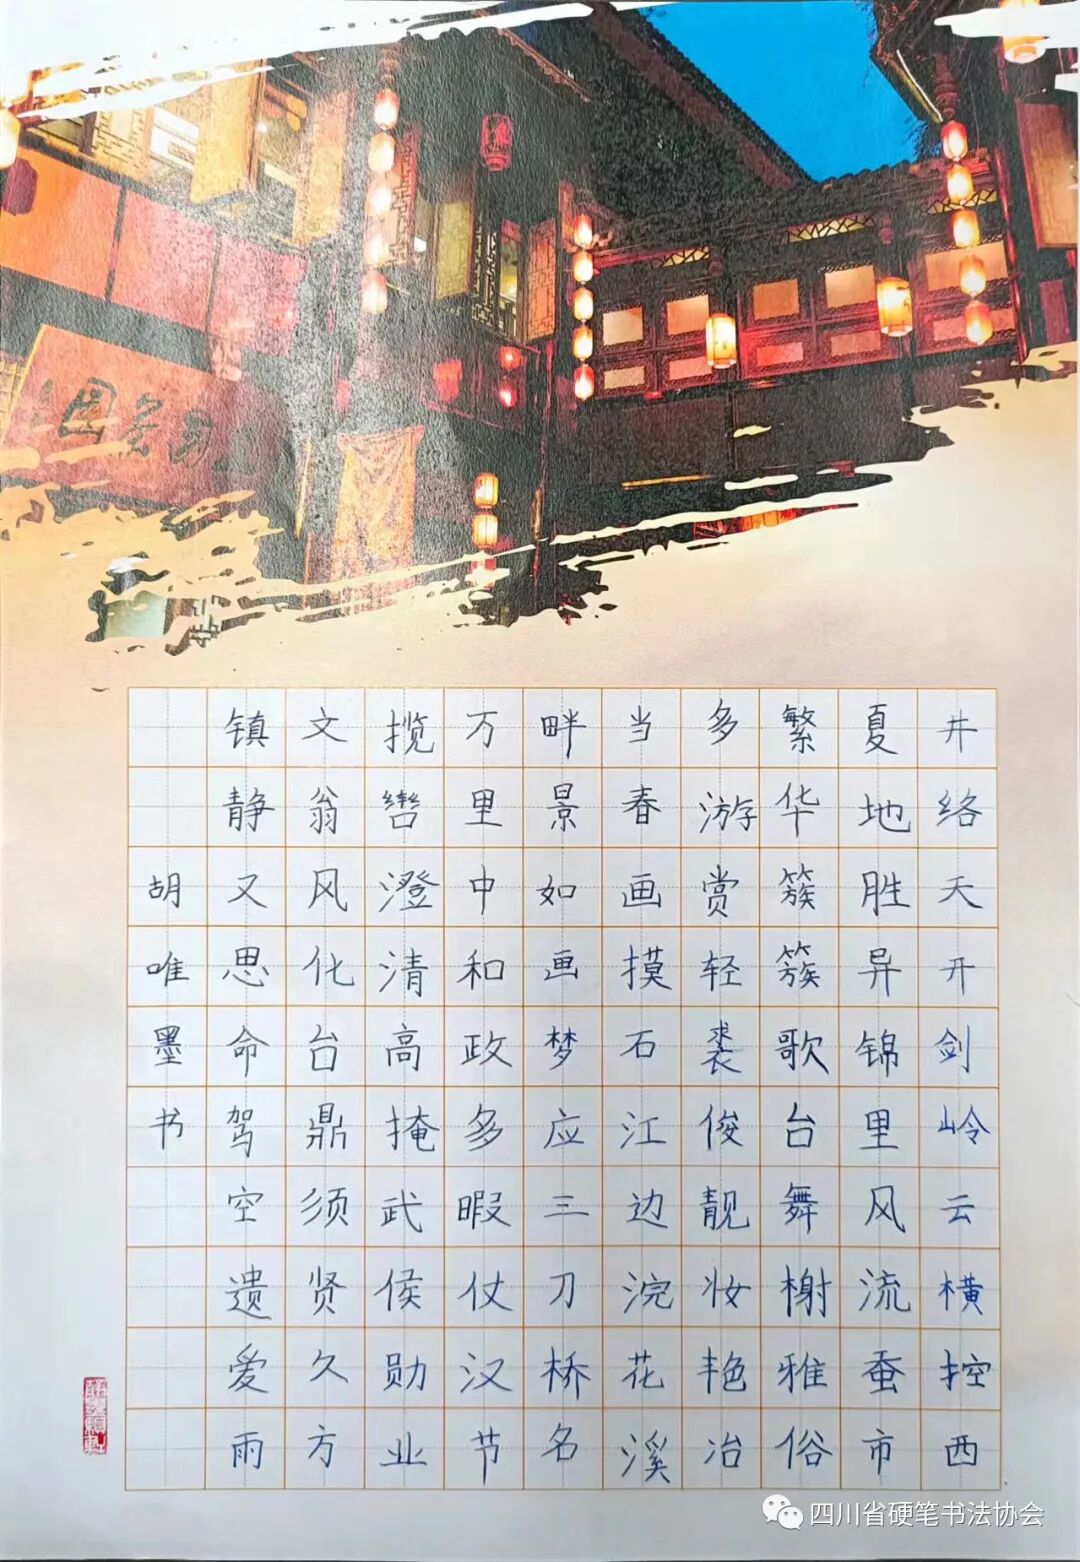 井络天开剑岭云横控西
夏地胜异锦里风流蚕市
繁华簇簇歌台舞榭雅俗
多游赏轻裘俊靓妆艳冶
当春画摸石江边浣花溪
畔景如画梦应三刀桥名
万里中和政多暇仗汉节
揽辔澄清高掩武侯勋业
文翁风化台鼎须贤久方
镇静又思命驾空遗爱雨
胡唯墨书
四川省硬笔书法协会